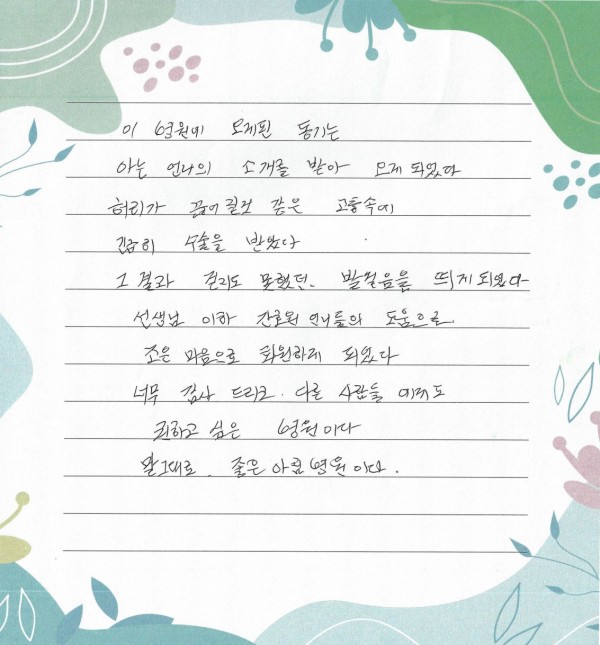 이 병원에 오게된 동기는
아는 언니의 소개를 받아 오게 되었다
허리가 끊어질것 같은 고통속에
급히 수술을 받았다
그 결과 걷지도 못했던. 발걸음을 띄게 되었다
선생님 이하 간호원 언니들의 도움으로.
조은 마음으로 퇴원하게 되었다
너무 감사 드리고. 다른 사람들 에게도
권하고 싶은 병원이다
말그대로. 좋은아침 병원 이다.